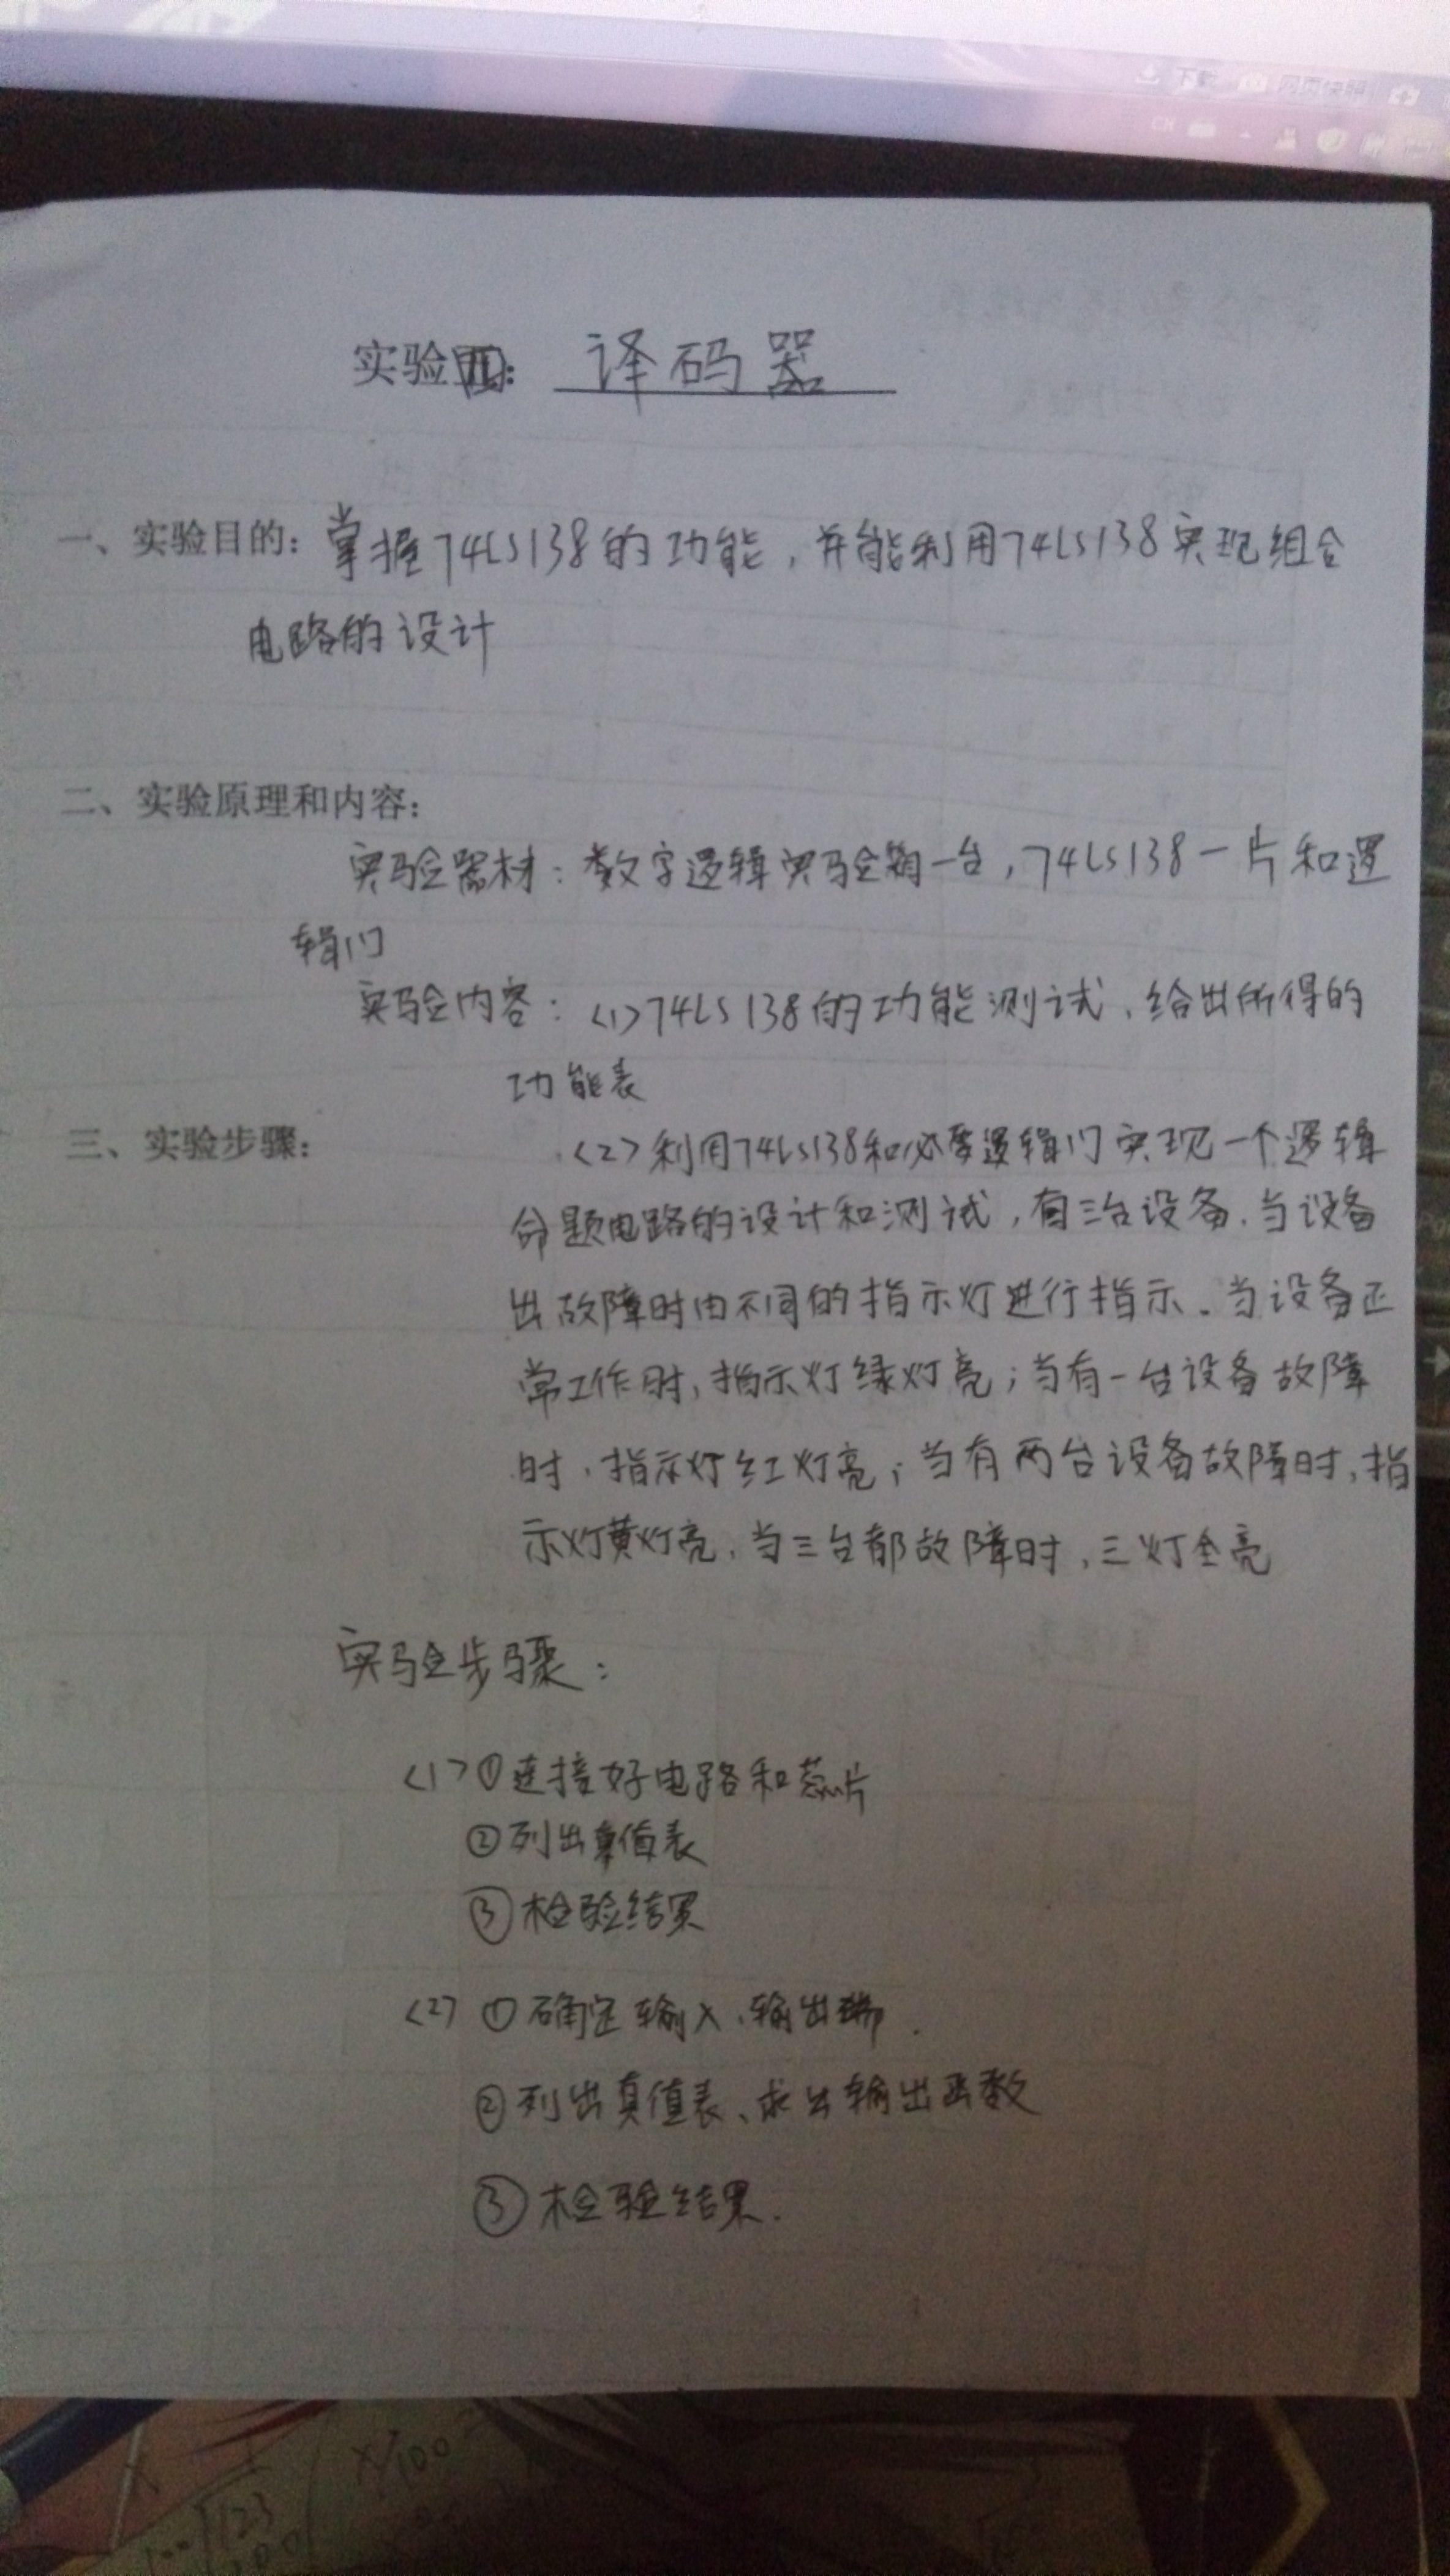 下载
网页快照
CH
实验四: 译码器
一、实验目的: 掌握74LS138的功能,并能利用74LS138实现组合
电路的设计
二、实验原理和内容:
实验器材:数字逻辑实验箱一台,74LS138一片和逻
辑门
实验内容:<1>74LS138的功能测试、给出所得的
功能表
三、实验步骤:
<2>利用74LS138和必要逻辑门实现一个逻辑
命题电路的设计和测试,有三台设备、当设备
出故障时由不同的指示灯进行指示。当设备正
常工作时,指示灯绿灯亮;当有一台设备故障
时,指示灯红灯亮;当有两台设备故障时,指
示灯黄灯亮、当三台都故障时,三灯全亮
实验步骤:
<1>①连接好电路和芯片
②列出真值表
③检验结果
<2>①确定输入、输出端.
②列出真值表、求出输出函数
③检验结果.
X/100
123